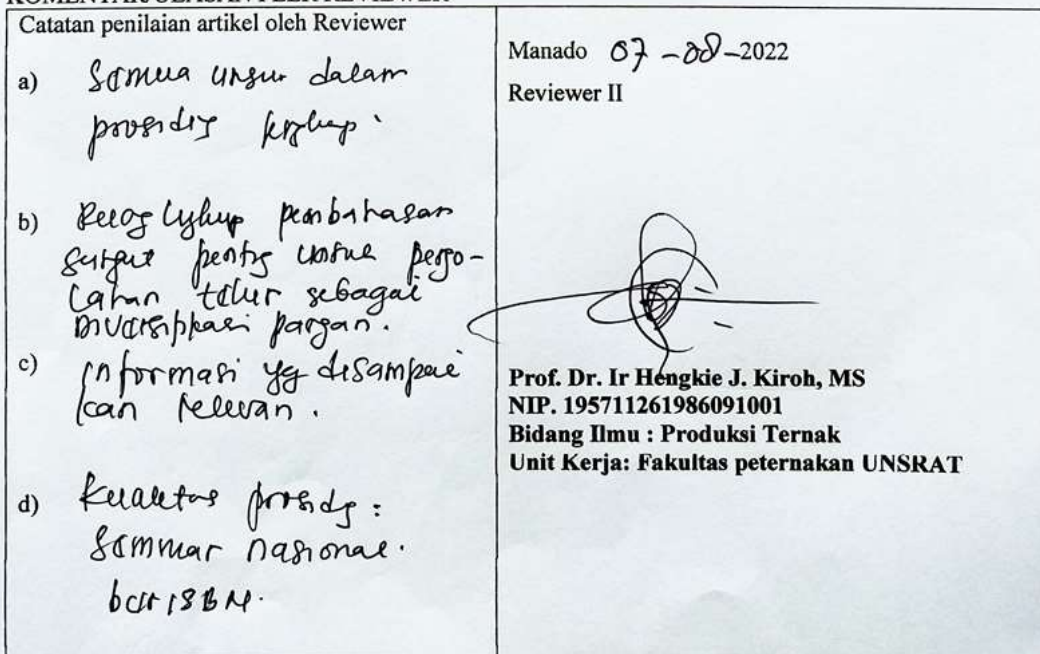 KOMENTAR/ULASAN PEER REVIEWER
Catatan penilaian artikel oleh Reviewer
a) Semua unsur dalam
prosiding lengkap.
b) Ruang lingkup pembahasan
sangat penting untuk pengo-
lahan telur sebagai
Diversifikasi pangan.
c) Informasi yg disampai
kan relevan.
d) Kualitas prosidg :
Seminar nasional.
ber ISBN.
Manado 07-08-2022
Reviewer II
Prof. Dr. Ir Hengkie J. Kiroh, MS
NIP. 195711261986091001
Bidang Ilmu : Produksi Ternak
Unit Kerja: Fakultas peternakan UNSRAT